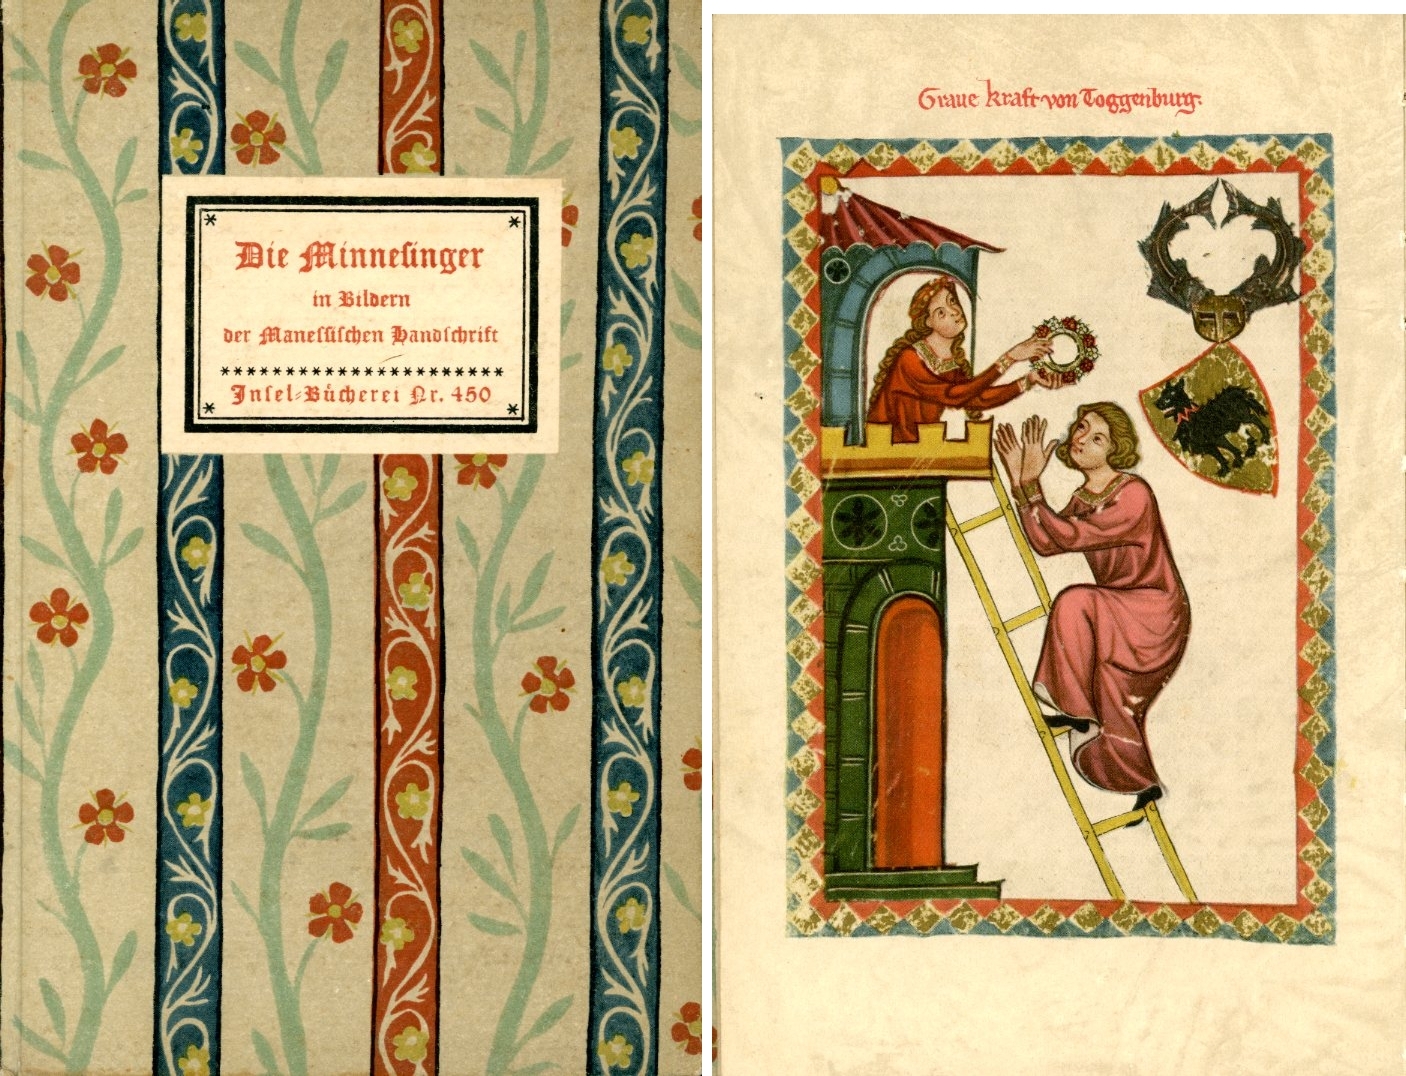 Die Minneſinger
in Bildern
der Maneſſiſchen Handſchrift
Inſel-Bücherei Nr. 450
Graue kraft von Toggenburg.